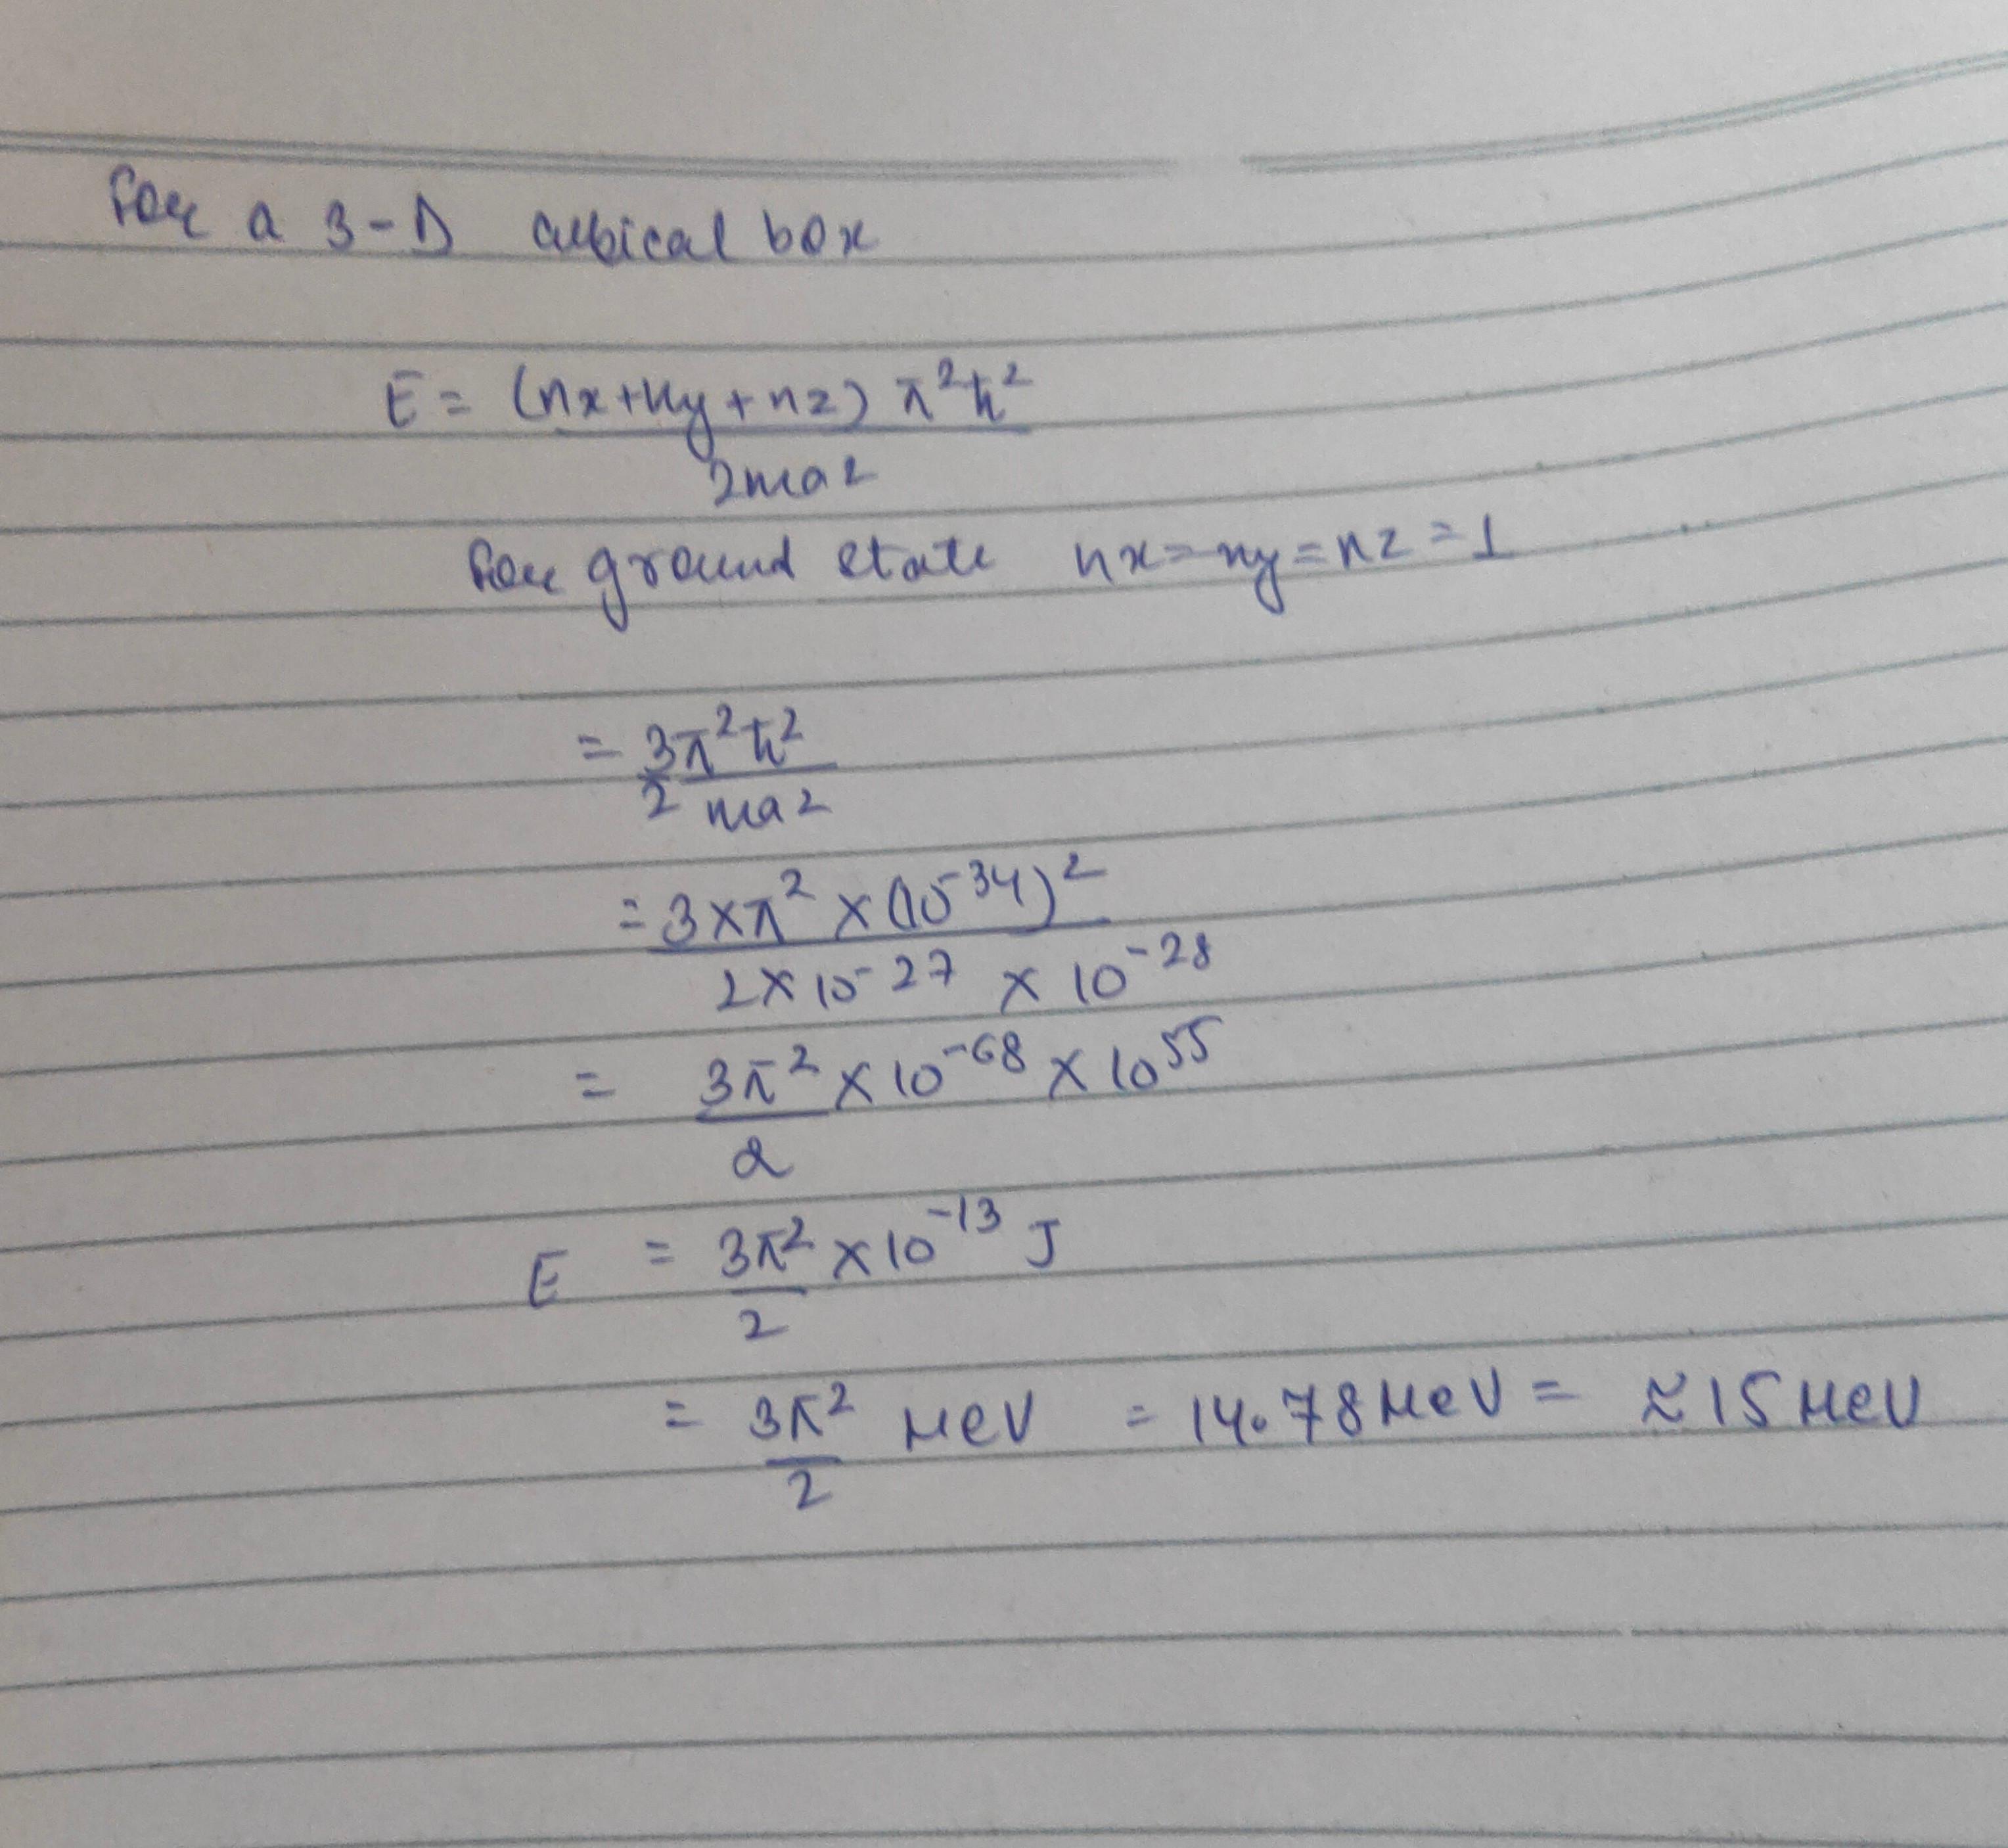 For a 3-D cubical box
E = (nx+ny+nz) π²ħ²
2ma²
For ground state nx=ny=nz=1
= 3π²ħ²
2 ma²
= 3×π²×(10⁻³⁴)²
2×10⁻²⁷ × 10⁻²⁸
= 3π² × 10⁻⁶⁸ × 10⁵⁵
2
E = 3π² × 10⁻¹³ J
2
= 3π² MeV = 14.78 MeV = ≈ 15 MeV
2